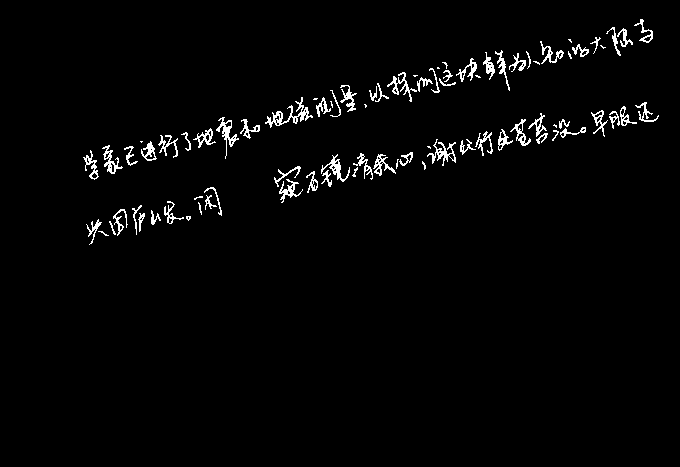 学家已进行了地震和地磁测量,以探测这块鲜为人知的大陆与
兴因庐山发。闲窥石镜清我心,谢公行处苍苔没。早服还